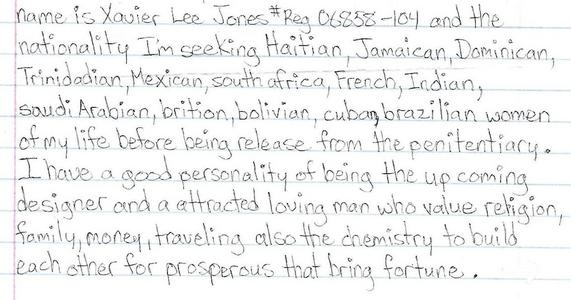 name is Xavier Lee Jones #Reg 06858-104 and the
nationality I'm seeking Haitian, Jamaican, Dominican,
Trinidadian, Mexican, south africa, French, Indian,
saudi Arabian, brition, bolivian, cuban, brazilian women
of my life before being release from the penitentiary.
I have a good personality of being the up coming
designer and a attracted loving man who value religion,
family, money, traveling also the chemistry to build
each other for prosperous that bring fortune.